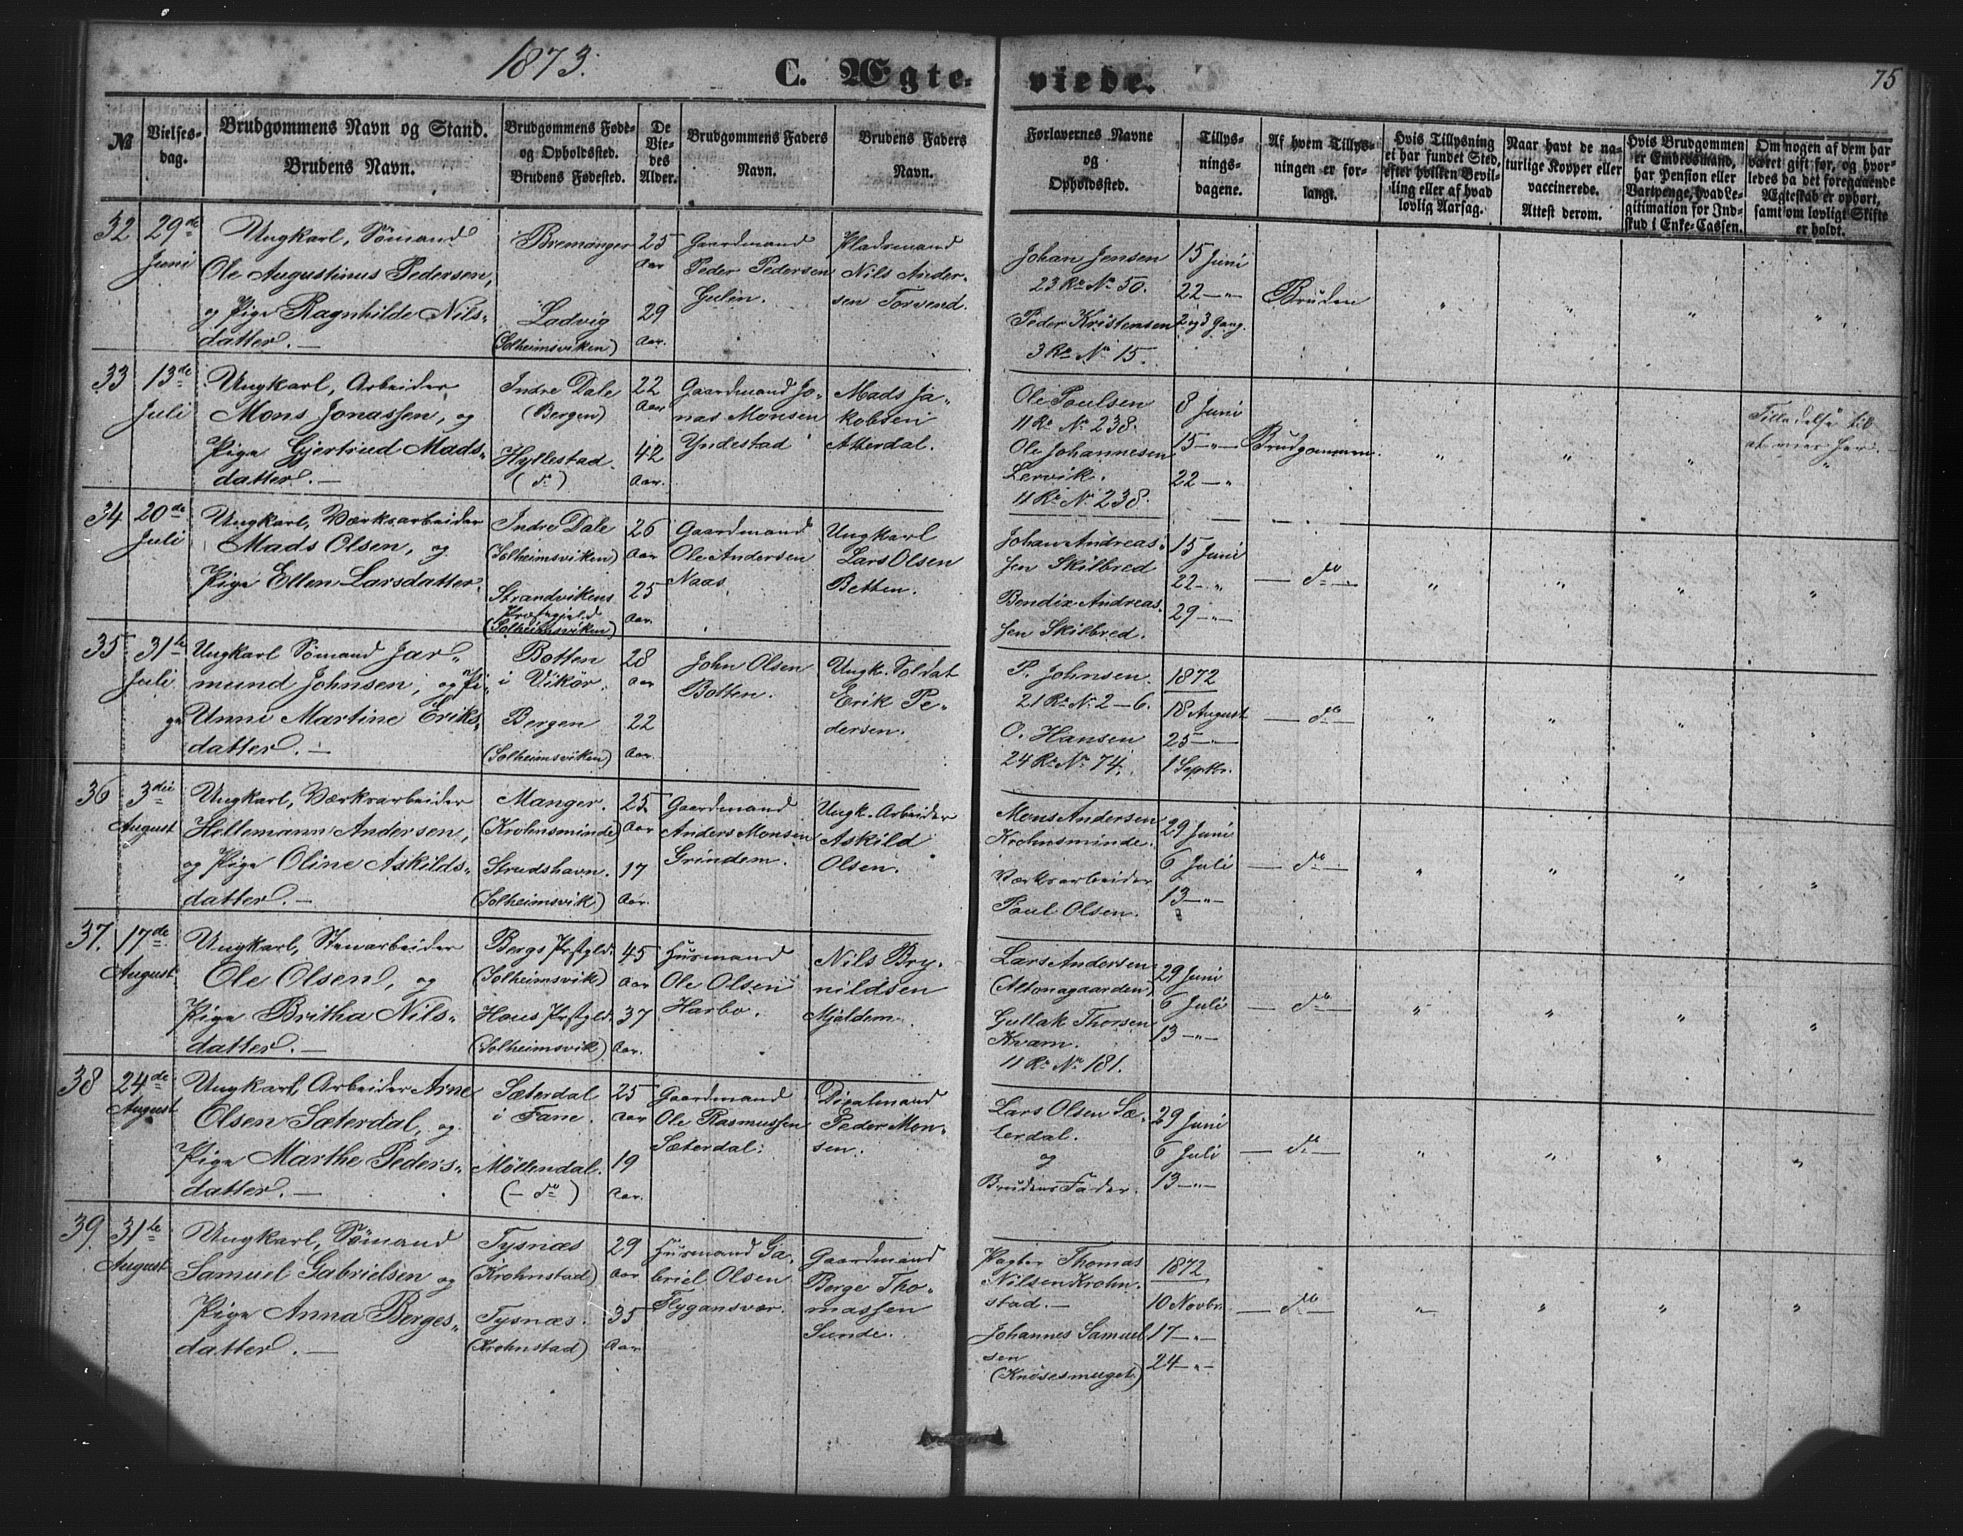 1873.
C. Ægte-
viede.
75
№
Vielses-
dag.
Brudgommens Navn og Stand.
Brudens Navn.
Brudgommens Føde-
og Opholdssted.
Brudens Fødested.
De
Vie-
des
Alder.
Brudgommens Faders
Navn.
Brudens Faders
Navn.
Forlovernes Navne
og
Opholdssted.
Tillys-
nings-
dagene.
Af hvem Tillys-
ningen er for-
langt.
Hvis Tillysning
ei har fundet Sted,
efter hvilken Bevil-
ling eller af hvad
lovlig Aarsag.
Naar havt de na-
turlige Kopper eller
vaccinerede.
Attest derom.
Hvis Brudgommen
er Embedsmand,
har Pension eller
Vartpenge, hvad Le-
gitimation for Ind-
skud i Enke-Cassen.
Om nogen af dem har
været gift før, og hvor-
ledes da det foregaaende
Ægteskab er ophørt,
samt om lovligt Skifte
er holdt.
32
29de
Juni
Ungkarl, Sömand
Ole Augustinus Pedersen,
og Pige Ragnhilde Nils-
datter. —
Bremanger
Ladvig
(Solheimsviken)
25
Aar
29
Aar.
Gaardmand
Peder Pedersen
Gulen.
Pladsmand
Nils Ander-
sen Torvend.
Johan Jensen
23 Ro No 50.
Peder Kristensen
3 Ro No 15.
15 Juni
22 — "
2 og 3 Gang.
Bruden
" " " "
33
13de
Juli
Ungkarl, Arbeider
Mons Jonassen, og
Pige Gjertrud Mads-
datter. —
Indre Dale
(Bergen)
Hyllestad.
(do)
22
Aar
42
Aar.
Gaardmand Jo-
nas Monsen
Yndestad
Mads Ja-
kobsen
Atterdal.
Ole Poulsen
11 Ro No 238.
Ole Johannesen
Lervik.
11 Ro No 238.
8 Juni
15 — "
22 — "
Brudgommen.
" " " "
Tilladelse til
at vies her. —
34
20de
Juli
Ungkarl, Værksarbeider
Mads Olsen, og
Pige Ellen Larsdatter.
Indre Dale
(Solheimsviken)
Strandvikens
Præstegjeld
(Solheimsviken)
26
Aar
25
Aar.
Gaardmand
Ole Andersen
Naas.
Ungkarl
Lars Olsen
Betten.
Johan Andreas-
sen Skilbred
Bendix Andreas-
sen Skilbred.
15 Juni
22 — "
29 — "
— do —
" " " "
35
31te
Juli
Ungkarl Sömand Jar-
mund Johnsen, og Pi-
ge Unni Martine Eriks-
datter. —
Botten
i Vikör.
Bergen
(Solheimsviken)
28
Aar
22
Aar.
John Olsen
Botten.
Ungk. Soldat
Erik Pe-
dersen.
P. Johnsen.
21 Ro No 2 — 6.
O. Hansen
24 Ro No 74.
1872
18 August
25 — "
1 Septbr.
— do —
" " " "
36
3die
August
Ungkarl, Værksarbeider
Hellemann Andersen,
og Pige Oline Askilds-
datter. —
Manger.
(Krohnsminde)
Strudshavn.
(Solheimsvik.)
25
Aar
17
Aar.
Gaardmand
Anders Monsen
Grindem.
Ungk. Arbeider
Askild
Olsen.
Mons Andersen
Krohnsminde.
Værksarbeider
Poul Olsen.
29 Juni
6 Juli
13 — "
— do —
" " " "
37.
17de
August
Ungkarl, Stenarbeider
Ole Olsen, og
Pige Britha Nils-
datter. —
Bergs Prstgld.
(Solheimsvik)
Hous Prstgld.
(Solheimsvik)
45
Aar
37
Aar.
Husmand
Ole Olsen
Harbo.
Nils Bry-
nildsen
Mjeldem.
Lars Andersen
(Altonagaarden)
Gullak Thorsen
Kvam.
11 Ro No 181.
29 Juni
6 Juli
13 — "
— do —
" " " "
38
24de
August
Ungkarl, Arbeider Arne
Olsen Sæterdal, og
Pige Marthe Peders-
datter. —
Sæterdal
i Fane.
Möllendal.
(— do)
25
Aar
19
Aar.
Gaardmand
Ole Rasmussen
Sæterdal.
Peder Mon-
sen.
Lars Olsen Sæ-
terdal.
og
Brudens Fader.
29 Juni
6 Juli
13 — "
— do —
" " " "
39.
31te
August
Ungkarl, Sömand
Samuel Gabrielsen og
Pige Anna Berges-
datter. —
Tysnæs
(Krohnstad)
Tysnæs.
(Krohnstad)
29
Aar
35
Aar.
Husmand Ga-
briel Olsen
Flygansvær.
Gaardmand
Berge Tho-
massen
Sunde.
Pagter Thomas
Nilsen Krohn-
stad. —
Johannes Samuel-
sen
(Knösesmuget)
1872
10 Novbr.
17 — "
24 — "
— do —
" " " "